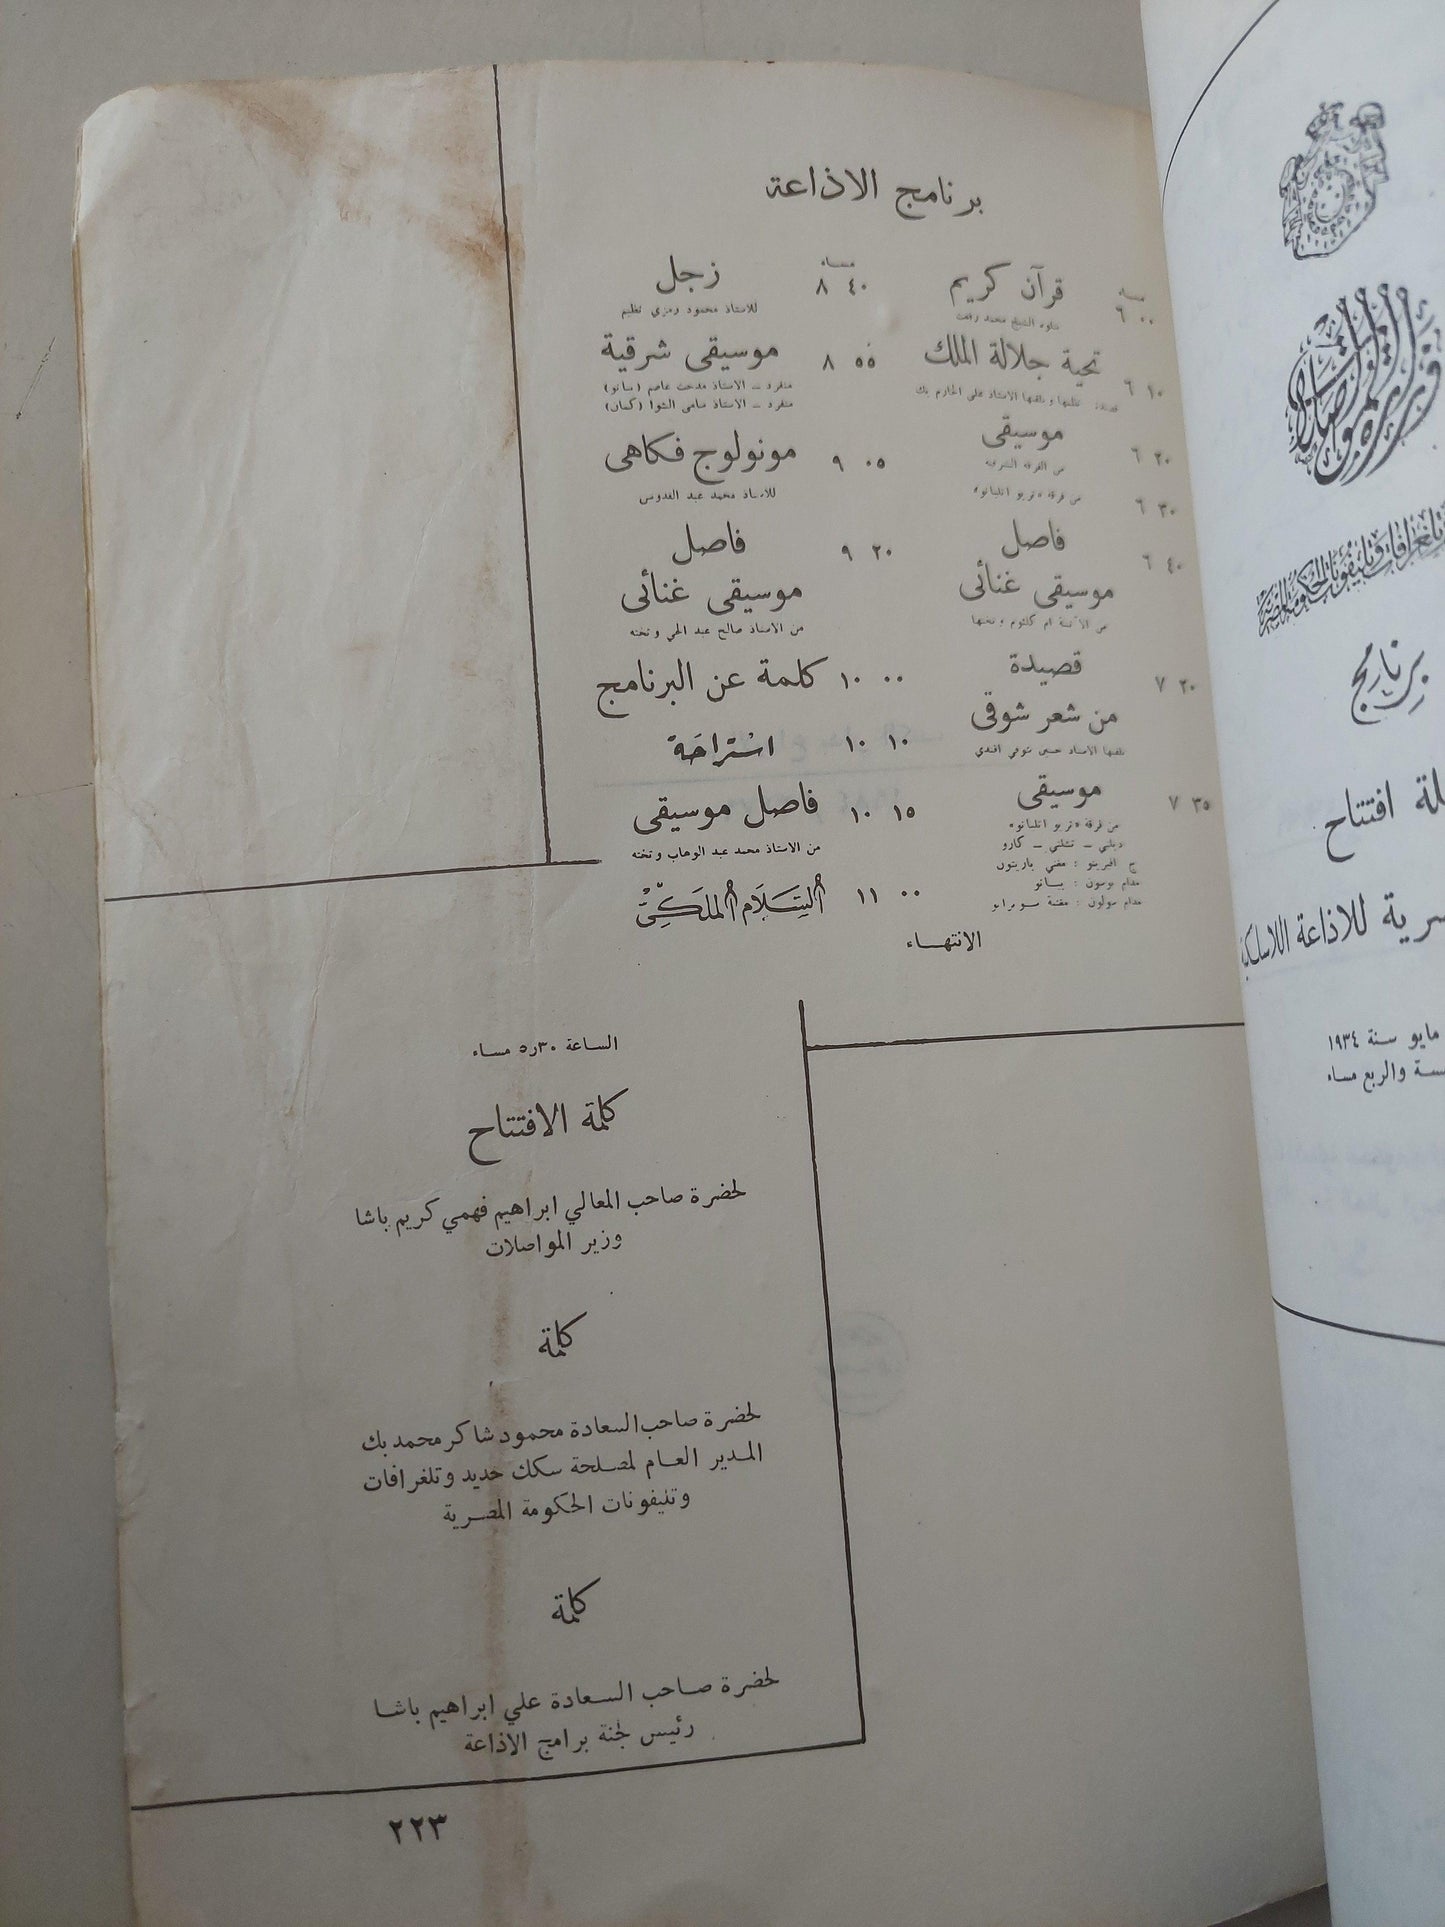 برنامج الاذاعة
مساء
٦ ٠٠ قرآن كريم
يتلوه الشيخ محمد رفعت
٦ ١٠ تحية جلالة الملك
قصيدة نظمها ويلقيها الاستاذ على الجارم بك
٦ ٢٠ موسيقى
من الفرقة الشرقية
٦ ٣٠ من فرقة «تريو اتليانو»
٦ ٤٠ فاصل
موسيقى غنائى
من الآنسة ام كلثوم وتختها
٧ ٢٠ قصيدة
من شعر شوقى
يلقيها الاستاذ حسين شوقي افندي
٧ ٣٥ موسيقى
من فرقة «تريو اتليانو»
ديللي - تشللي - كارو
ج افيرينو : مغني باريتون
مدام بوسون : بيانو
مدام سولون : مغنية سوبرانو
مساء
٨ ٤٠ زجل
للاستاذ محمود رمزي نظيم
٨ ٥٥ موسيقى شرقية
منفرد - الاستاذ مدحت عاصم (بيانو)
منفرد - الاستاذ سامى الشوا (كمان)
٩ ٠٥ مونولوج فكاهى
للاستاذ محمد عبد القدوس
٩ ٢٠ فاصل
موسيقى غنائى
من الاستاذ صالح عبد الحي وتخته
١٠ ٠٠ كلمة عن البرنامج
١٠ ١٠ اسْتراحَة
١٠ ١٥ فاصل موسيقى
من الاستاذ محمد عبد الوهاب وتخته
١١ ٠٠ السَّلَام الملَكِيّ
الانتهاء
الساعة ٥٫٣٠ مساء
كلمة الافتتاح
لحضرة صاحب المعالي ابراهيم فهمي كريم باشا
وزير المواصلات
كلمة
لحضرة صاحب السعادة محمود شاكر محمد بك
المدير العام لمصلحة سكك حديد وتلغرافات
وتليفونات الحكومة المصرية
كلمة
لحضرة صاحب السعادة علي ابراهيم باشا
رئيس لجنة برامج الاذاعة
٢٢٣
برنامج
افتتاح
للاذاعة اللاسلكية
مايو سنة ١٩٣٤
والربع مساء